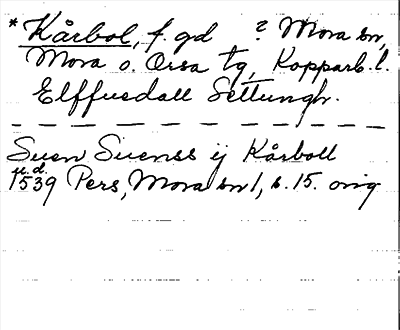 * Kårbol, f. gd ? Mora sn,
Mora o. Orsa tg, Kopparb. l.
Elffuedall Settungh.
Suen Suenss ij Kårboll
u.d.
1539 Pers, Mora sn 1, s. 15. orig